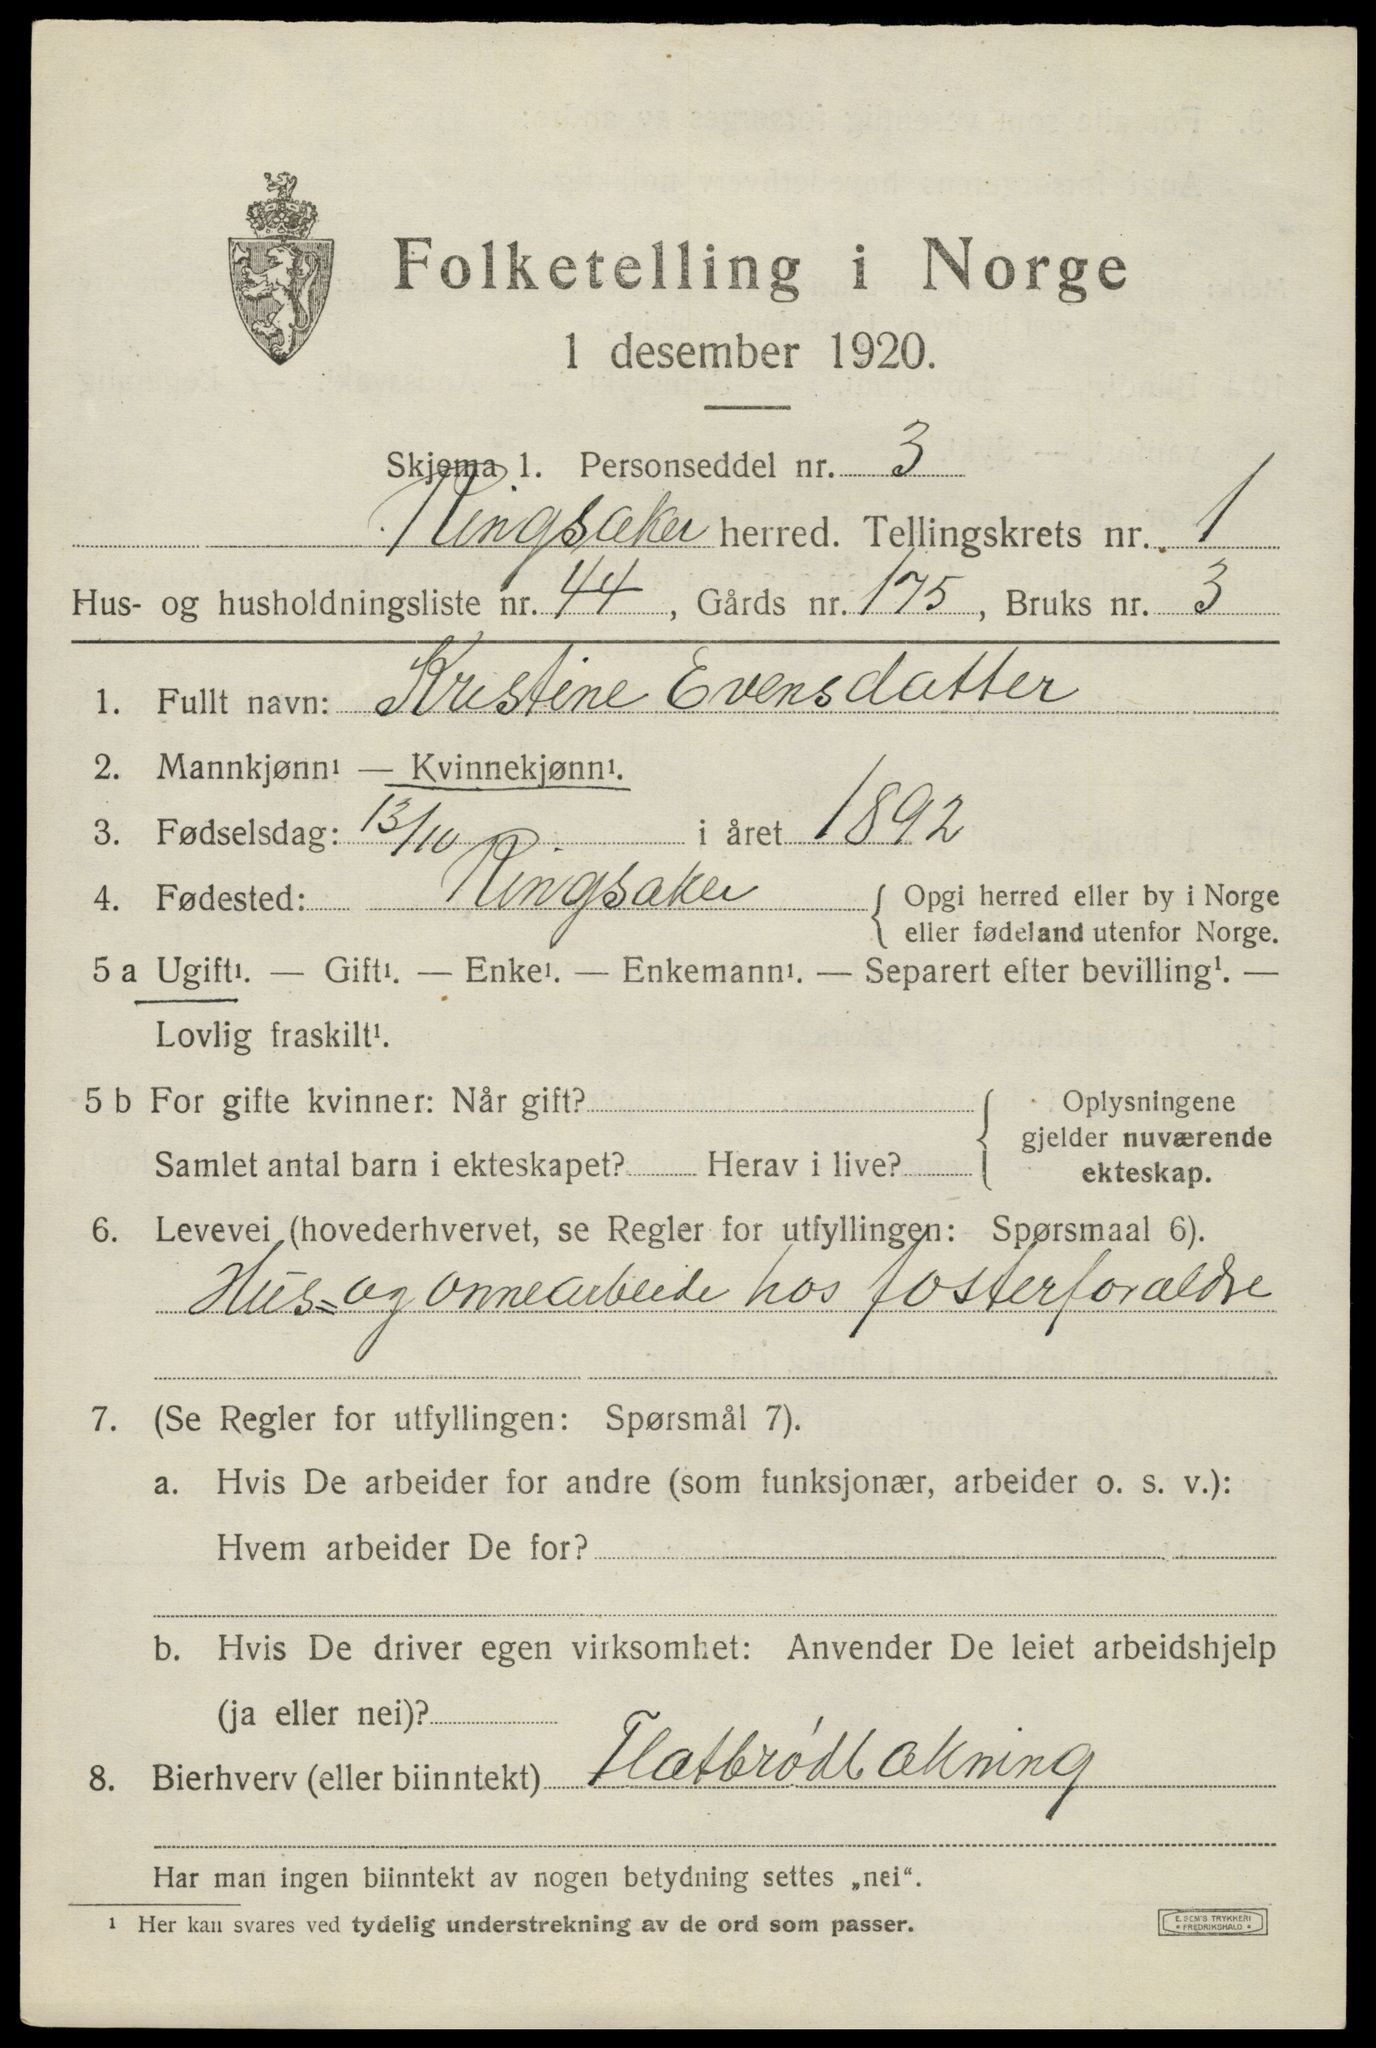 Folketelling i Norge
1 desember 1920.
Skjema 1. Personseddel nr. 3
Ringsaker herred. Tellingskrets nr. 1
Hus- og husholdningsliste nr. 44, Gårds nr. 175, Bruks nr. 3
1. Fullt navn: Kristine Evensdatter
2. Mannkjønn¹ — Kvinnekjønn¹.
3. Fødselsdag: 13/10 i året 1892
4. Fødested: Ringsaker { Opgi herred eller by i Norge
eller fødeland utenfor Norge.
5 a Ugift¹. — Gift¹. — Enke¹. — Enkemann¹. — Separert efter bevilling¹. —
Lovlig fraskilt¹.
5 b For gifte kvinner: Når gift? { Oplysningene
gjelder nuværende
Samlet antal barn i ekteskapet? Herav i live? ekteskap.
6. Levevei (hovederhvervet, se Regler for utfyllingen: Spørsmaal 6).
Hus= og onnearbeide hos fosterforældre
7. (Se Regler for utfyllingen: Spørsmål 7).
a. Hvis De arbeider for andre (som funksjonær, arbeider o. s. v.):
Hvem arbeider De for?
b. Hvis De driver egen virksomhet: Anvender De leiet arbeidshjelp
(ja eller nei)?
8. Bierhverv (eller biinntekt) Flatbrødbakning
Har man ingen biinntekt av nogen betydning settes „nei“.
¹ Her kan svares ved tydelig understrekning av de ord som passer.
E. SEM'S TRYKKERI
FREDRIKSHALD